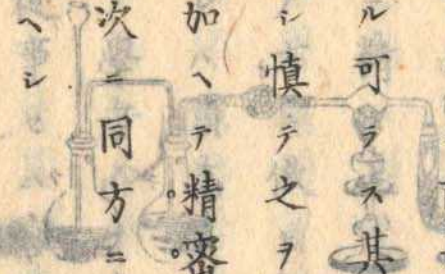 ル可ラス其
シ慎テ之ヲ
加ヘテ精密
次ニ同方ニ
ヘシ